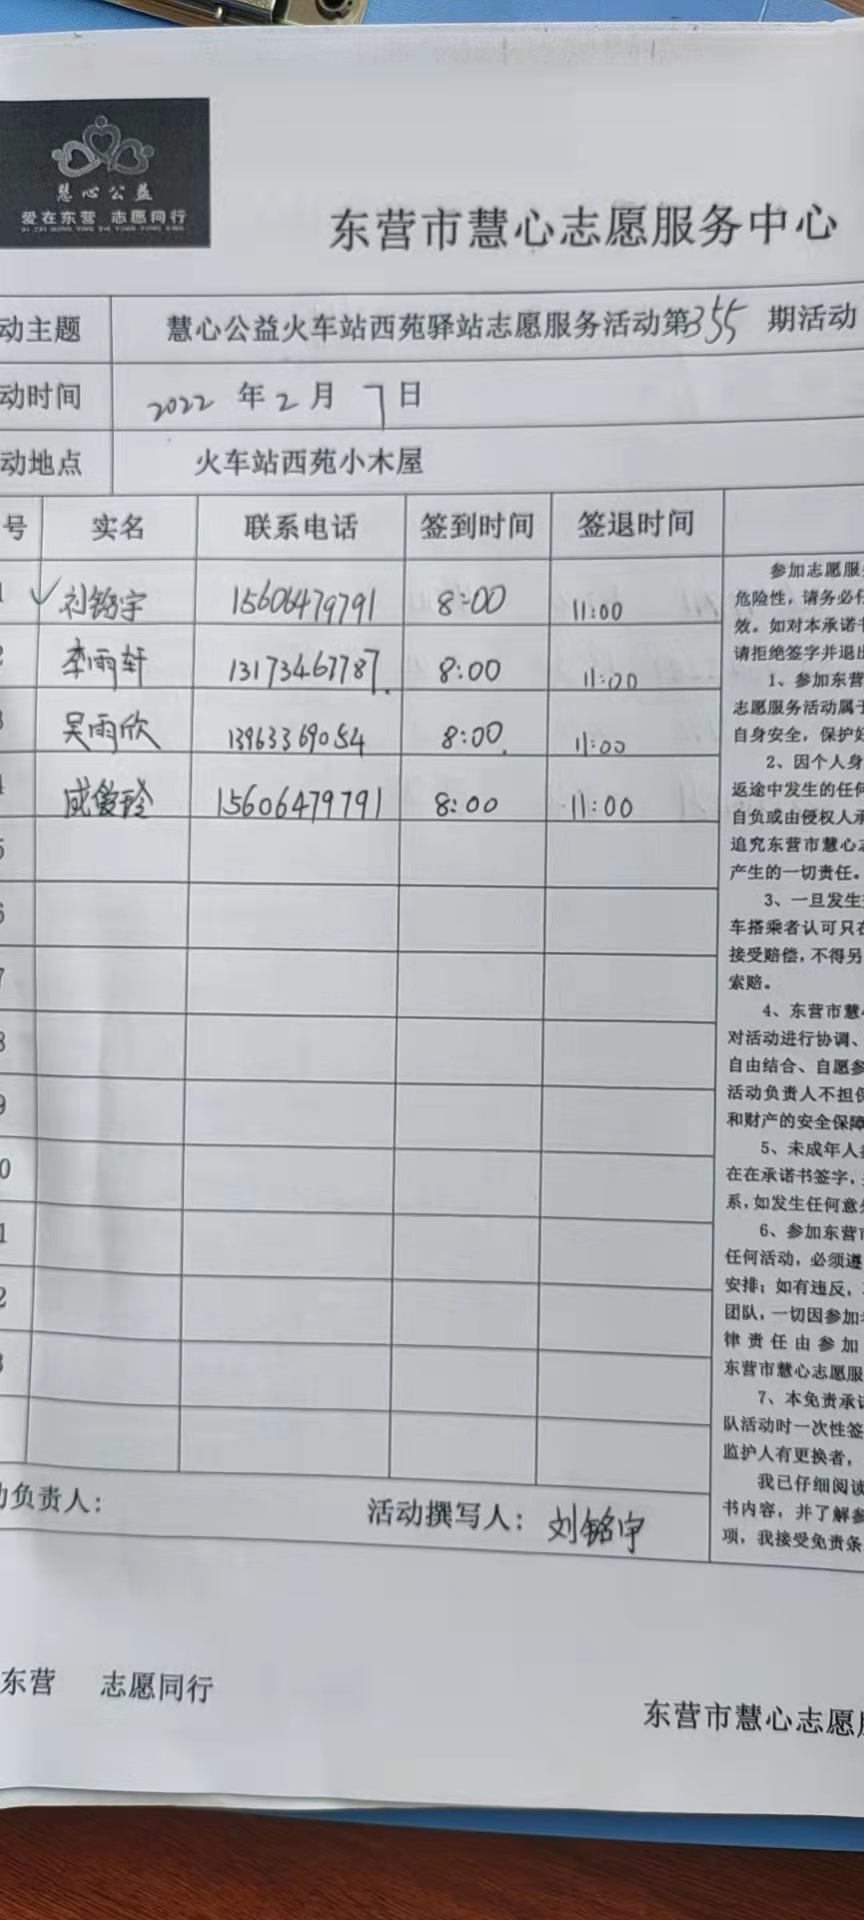 慧心公益
爱在东营 志愿同行
东营市慧心志愿服务中心
动主题 慧心公益火车站西苑驿站志愿服务活动第355期活动
动时间 2022年2月7日
动地点 火车站西苑小木屋
号 实名 联系电话 签到时间 签退时间
1 刘铭宇 15606479791 8:00 11:00
2 李雨轩 13173467787 8:00 11:00
3 吴雨欣 13963369054 8:00 11:00
4 成俊玲 15606479791 8:00 11:00
5
6
7
8
9
0
1
2
3
参加志愿服
危险性，请务必仔
效。如对本承诺书
请拒绝签字并退出
1、参加东营
志愿服务活动属于
自身安全，保护好
2、因个人身
返途中发生的任何
自负或由侵权人承
追究东营市慧心志
产生的一切责任。
3、一旦发生
车搭乘者认可只在
接受赔偿，不得另
索赔。
4、东营市慧心
对活动进行协调、
自由结合、自愿参
活动负责人不担保
和财产的安全保障
5、未成年人
在在承诺书签字，
系，如发生任何意外
6、参加东营市
任何活动，必须遵
安排；如有违反，
团队，一切因参加
律责任由参加
东营市慧心志愿服
7、本免责承诺
队活动时一次性签
监护人有更换者，
我已仔细阅读
书内容，并了解参
项，我接受免责条
动负责人： 活动撰写人：刘铭宇
东营 志愿同行
东营市慧心志愿服